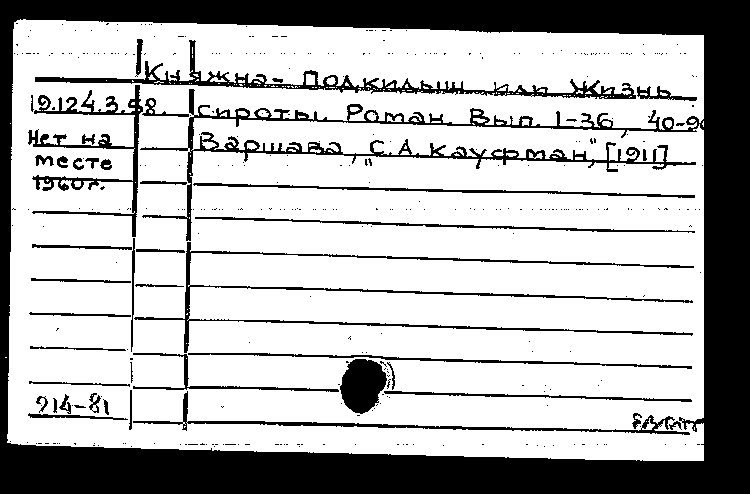 Княжна-Подкидыш или Жизнь
19.124.3.58. сироты. Роман. Вып. 1-36, 40-90
Нет на Варшава, „С.А. Кауфман", [1911]
месте
1960г.
914-81